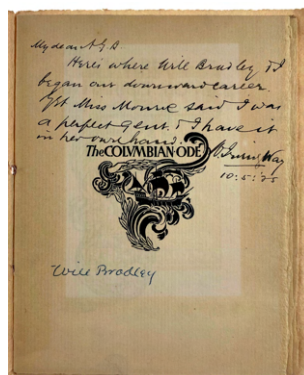 My dear A.G.B.
Here's where Will Bradley & I
began our downward career.
Yet Miss Monroe said I was
a perfect Gent. & I have it
in her own hand.
W. Irving Way
10:5:25
The COLVMBIAN·ODE
Will Bradley